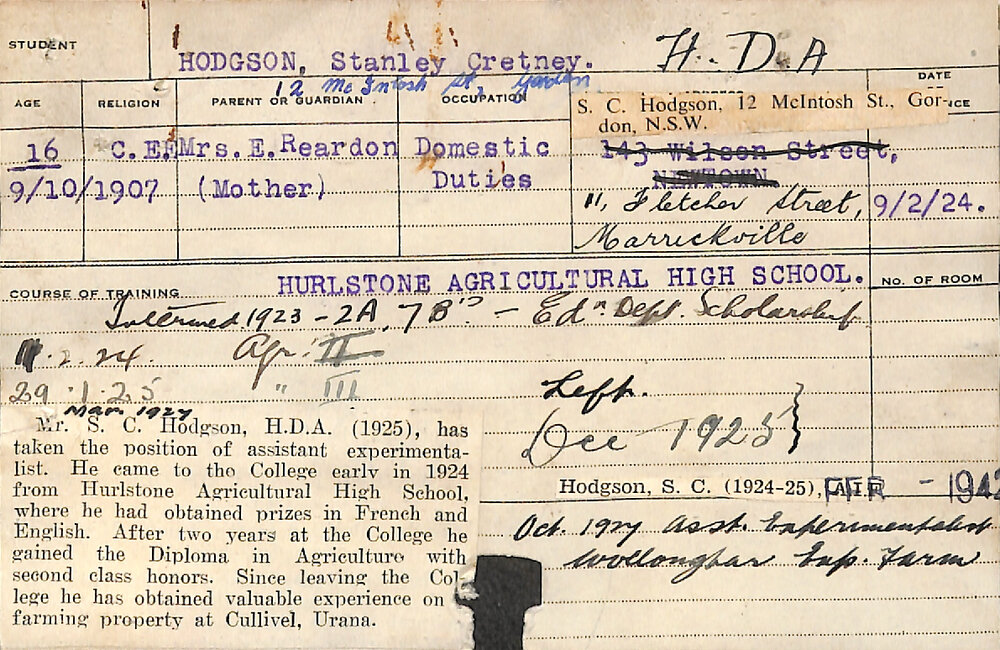 STUDENT
HODGSON, Stanley Cretney.
H. D A
12 McIntosh St, Gordon
DATE
AGE RELIGION PARENT OR GUARDIAN OCCUPATION
S. C. Hodgson, 12 McIntosh St., Gor-
don, N.S.W.
16 C.E. Mrs.E.Reardon Domestic
143 Wilson Street,
9/10/1907 (Mother) Duties
NEWTOWN
11, Fletcher Street, 9/2/24.
Marrickville
COURSE OF TRAINING HURLSTONE AGRICULTURAL HIGH SCHOOL. NO. OF ROOM
Intermed 1923 - 2A, 7B's - Edn. Dept. Scholarship
2. 24. Agr. II
29. 1. 25 " III
Left
Dec 1925
Mar. 1927
Mr. S. C. Hodgson, H.D.A. (1925), has
taken the position of assistant experimenta-
list. He came to the College early in 1924
from Hurlstone Agricultural High School,
where he had obtained prizes in French and
English. After two years at the College he
gained the Diploma in Agriculture with
second class honors. Since leaving the Col-
lege he has obtained valuable experience on
farming property at Cullivel, Urana.
Hodgson, S. C. (1924-25), - 1942
Oct. 1927 Asst. Experimentalist
Wollongbar Exp. Farm